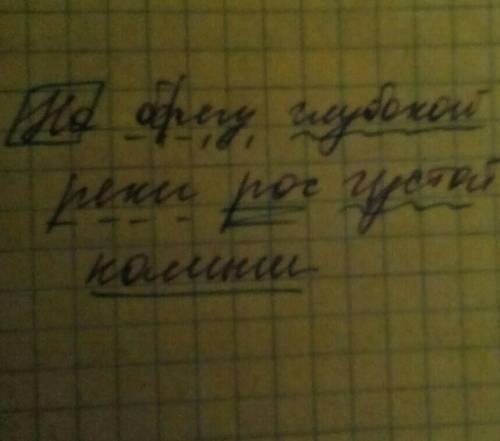 На обрегу глубокой
реки рос густой
камыш